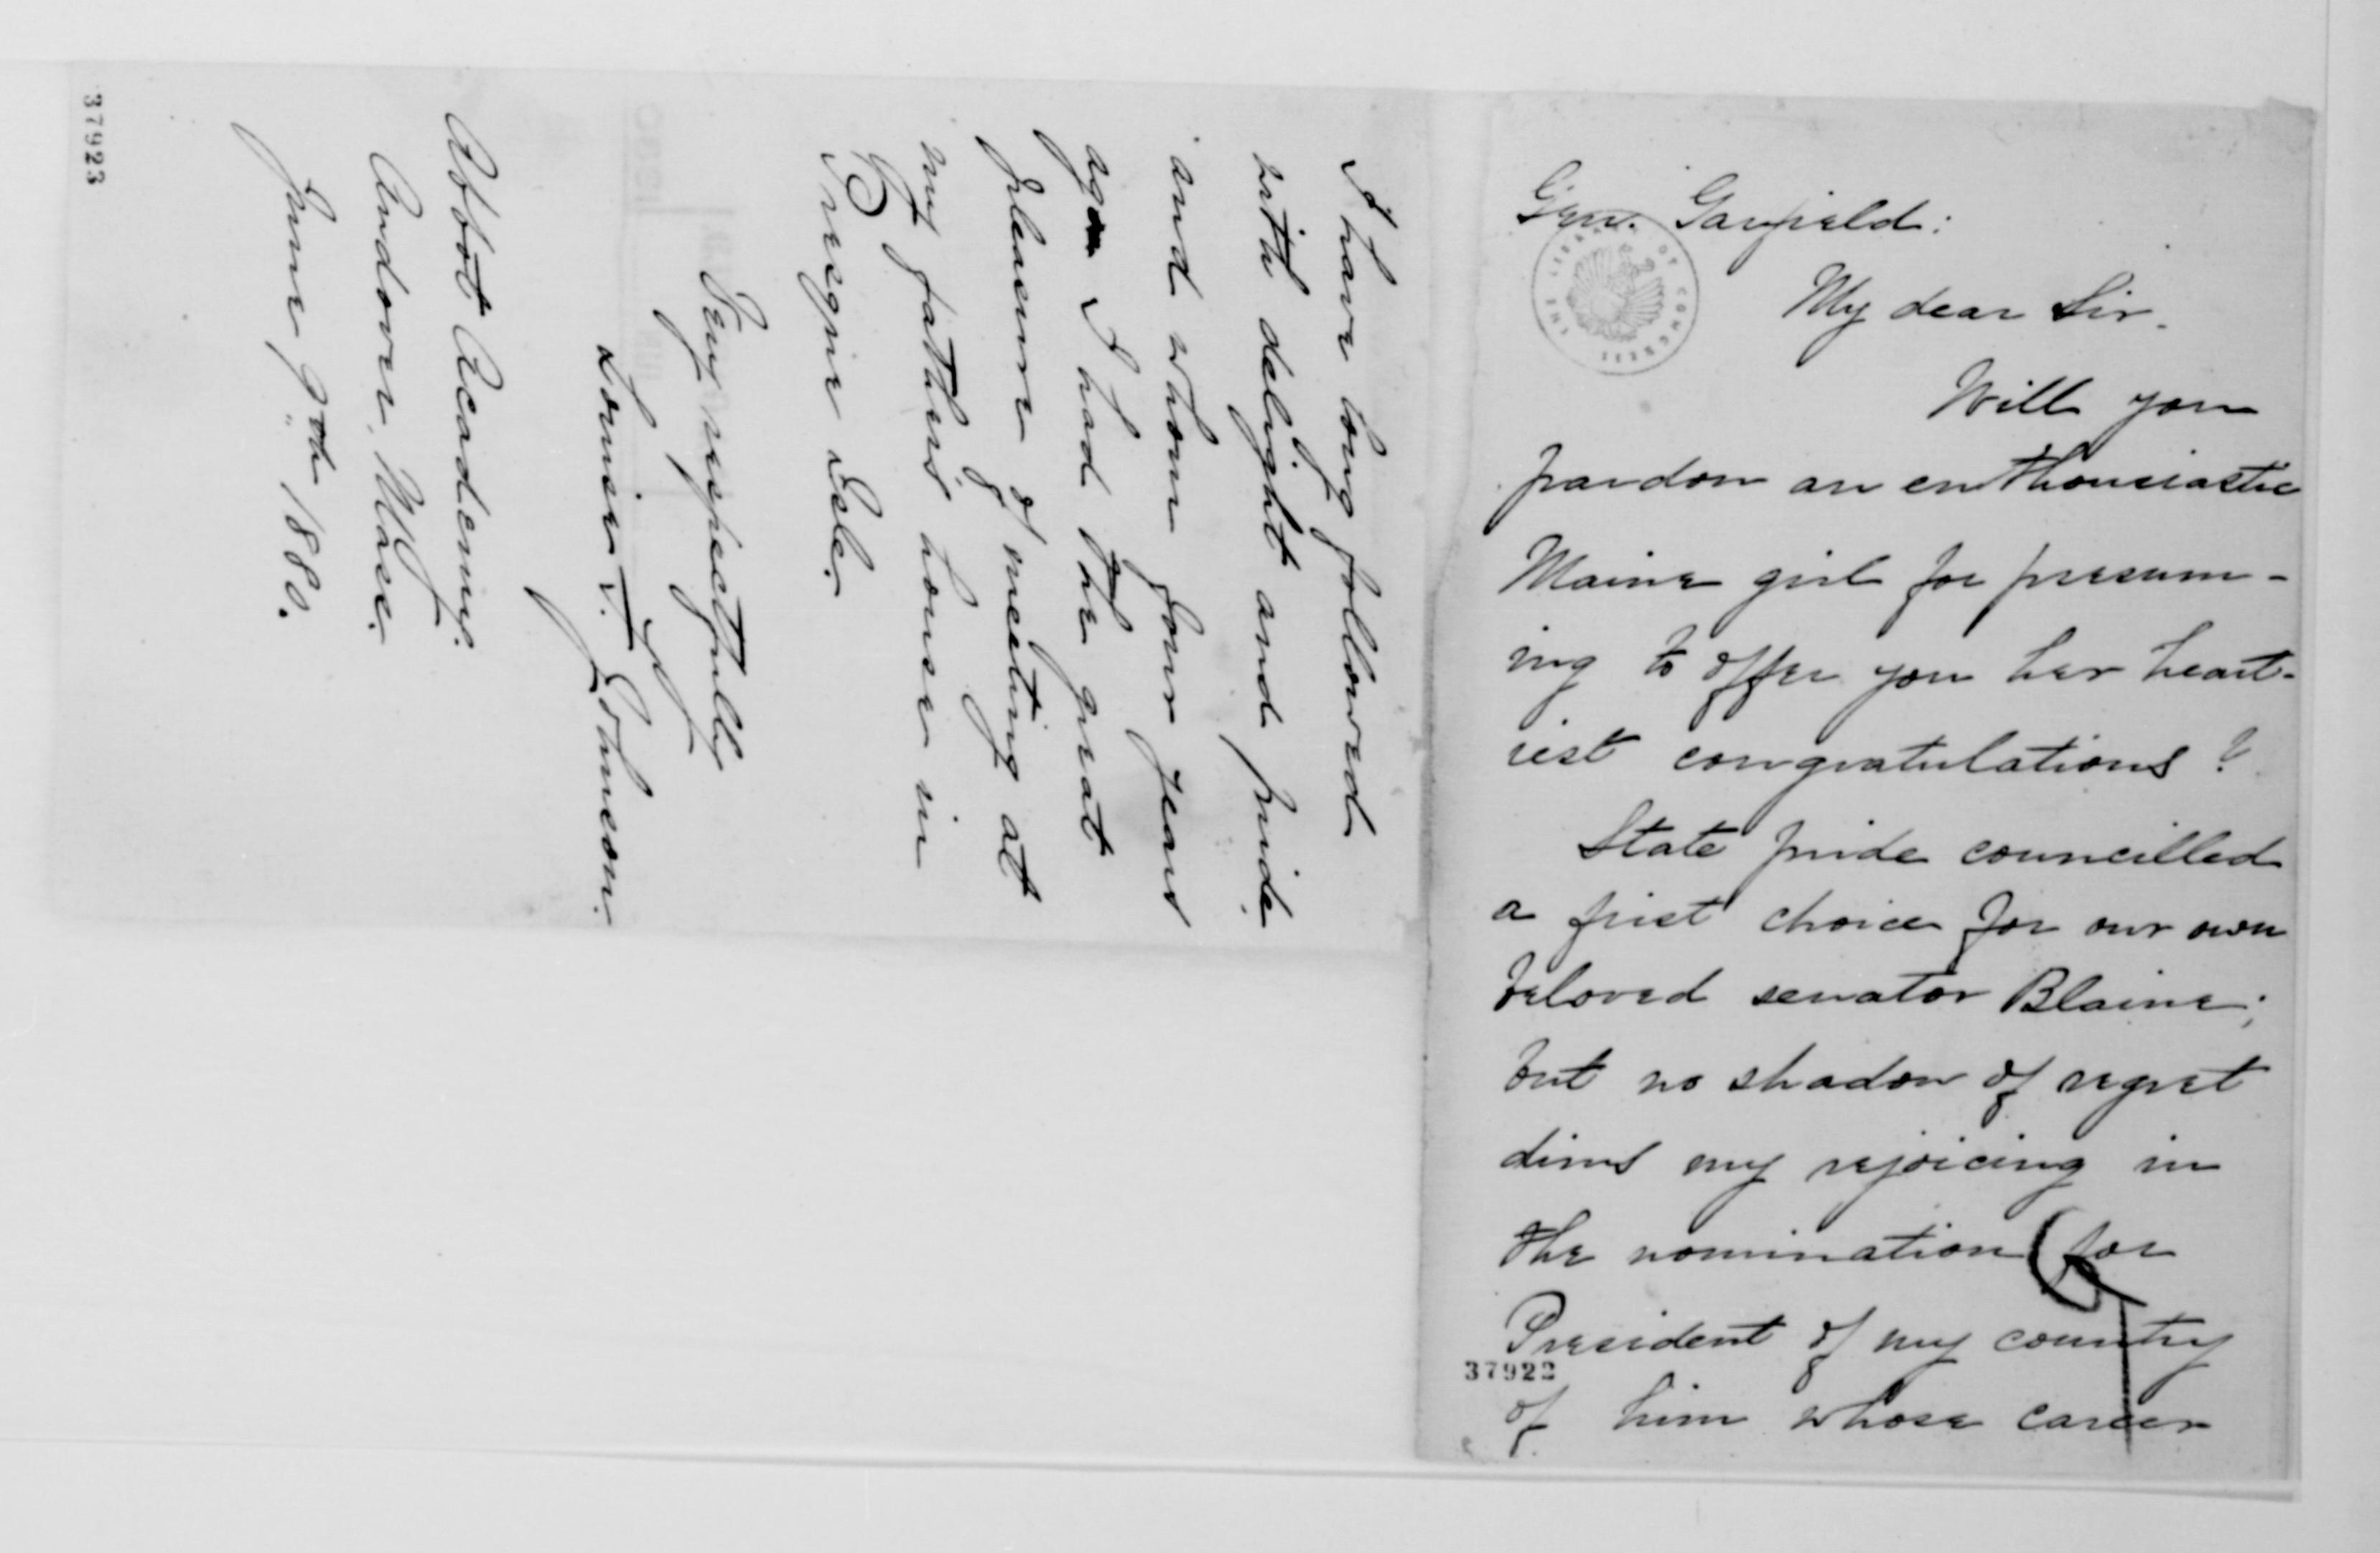 Gen. Garfield:
My dear Sir.
Will you
pardon an enthousiastic
Maine girl for presum-
ing to offer you her heart-
iest congratulations?
State pride councilled
a first choice for our own
beloved senator Blaine;
but no shadow of regret
dims my rejoicing in
the nomination for
President of my country
37922
of him whose career
I have long followed
with delight and pride
and whom four years
ago I had the great
pleasure of meeting at
my father's house in
Presque Isle.
Very respectfully
Louise S. Johnson.
Abbot Academy.
Andover, Mass.
June 9th 1880.
37923